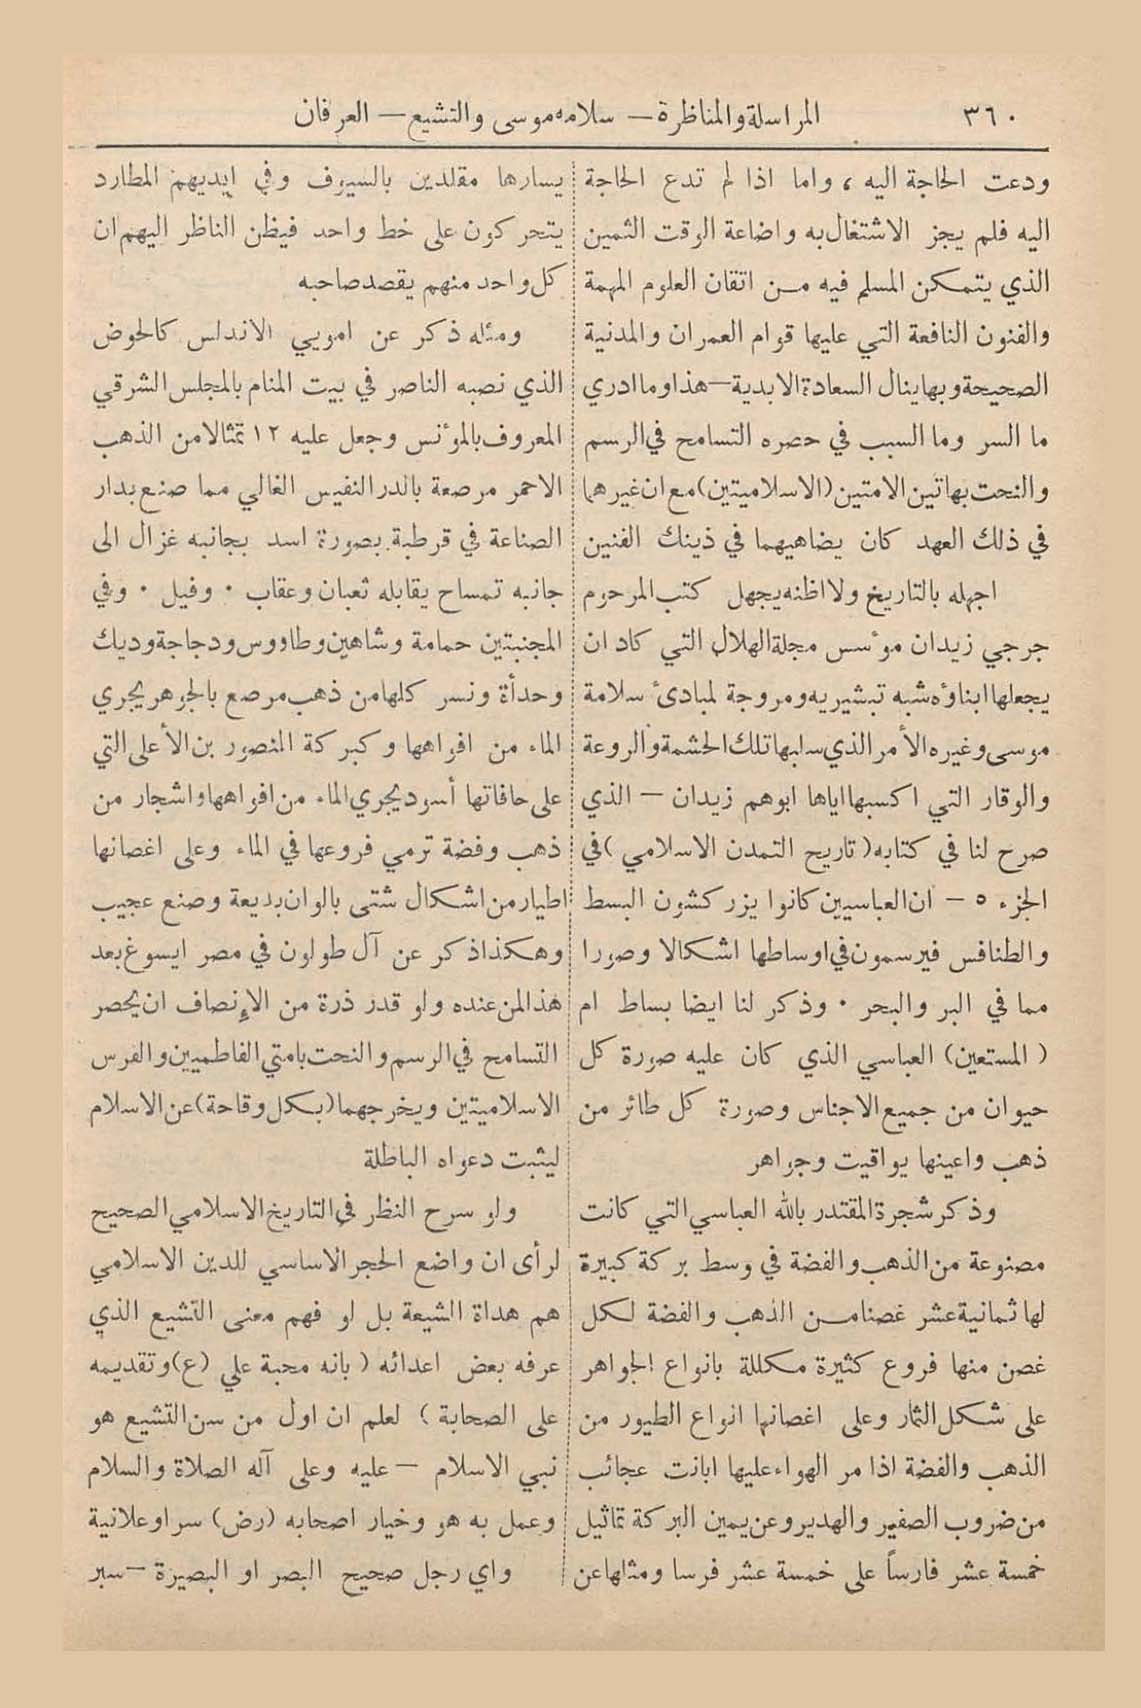 ٣٦٠ المراسلة والمناظرة — سلامه موسى والتشيع — العرفان
ودعت الحاجة اليه ، واما اذا لم تدع الحاجة
اليه فلم يجز الاشتغال به واضاعة الوقت الثمين
الذي يتمكن المسلم فيه من اتقان العلوم المهمة
والفنون النافعة التي عليها قوام العمران والمدنية
الصحيحة وبها ينال السعادة الابدية — هذا وما ادري
ما السر وما السبب في حصره التسامح في الرسم
والنحت بهاتين الامتين (الاسلاميتين) مع ان غيرهما
في ذلك العهد كان يضاهيهما في ذينك الفنين
اجهله بالتاريخ ولا اظنه يجهل كتب المرحوم
جرجي زيدان موٴسس مجلة الهلال التي كاد ان
يجعلها ابناوٴه شبه تبشيريه ومروجة لمبادئ سلامة
موسى وغيره الأمر الذي سلبها تلك الحشمة والروعة
والوقار التي اكسبها اياها ابوهم زيدان — الذي
صرح لنا في كتابه ( تاريح التمدن الاسلامي ) في
الجزء ٥ — ان العباسيين كانوا يزركشون البسط
والطنافس فيرسمون في اوساطها اشكالا وصورا
مما في البر والبحر ٠ وذكر لنا ايضا بساط ام
( المستعين ) العباسي الذي كان عليه صورة كل
حيوان من جميع الاجناس وصورة كل طائر من
ذهب واعينها يواقيت وجواهر
وذكر شجرة المقتدر بالله العباسي التي كانت
مصنوعة من الذهب والفضة في وسط بركة كبيرة
لها ثمانية عشر غصنا من الذهب والفضة لكل
غصن منها فروع كثيرة مكللة بانواع الجواهر
على شكل الثمار وعلى اغصانها انواع الطيور من
الذهب والفضة اذا مر الهواء عليها ابانت عجائب
من ضروب الصفير والهدير وعن يمين البركة تماثيل
خمسة عشر فارساً على خمسة عشر فرسا ومثلها عن
يسارها مقلدين بالسيوف وفي ايديهم المطارد
يتحركون على خط واحد فيظن الناظر اليهم ان
كل واحد منهم يقصد صاحبه
ومثله ذكر عن امويي الاندلس كالحوض
الذي نصبه الناصر في بيت المنام بالمجلس الشرقي
المعروف بالموٴنس وجعل عليه ١٢ تمثالا من الذهب
الاحمر مرصعة بالدر النفيس الغالي مما صنع بدار
الصناعة في قرطبة بصورة اسد بجانبه غزال الى
جانبه تمساح يقابله ثعبان وعقاب ٠ وفيل ٠ وفي
المجنبتين حمامة وشاهين وطاووس ودجاجة وديك
وحدأة ونسر كلها من ذهب مرصع بالجوهر يجري
الماء من افواهها وكبركة المنصور بن الأعلى التي
على حافاتها أسود يجري الماء من افواهها واشجار من
ذهب وفضة ترمي فروعها في الماء وعلى اغصانها
اطيار من اشكال شتى بالوان بديعة وصنع عجيب
وهكذا ذكر عن آل طولون في مصر ايسوغ بعد
هذا لمن عنده ولو قدر ذرة من الإنصاف ان يحصر
التسامح في الرسم والنحت بامتي الفاطميين والفرس
الاسلاميتين ويخرجهما (بكل وقاحة) عن الاسلام
ليثبت دعواه الباطلة
ولو سرح النظر في التاريخ الاسلامي الصحيح
لرأى ان واضع الحجر الاساسي للدين الاسلامي
هم هداة الشيعة بل لو فهم معنى التشيع الذي
عرفه بعض اعدائه ( بانه محبة علي (ع) وتقديمه
على الصحابة ) لعلم ان اول من سن التشيع هو
نبي الاسلام — عليه وعلى آله الصلاة والسلام
وعمل به هو وخيار اصحابه (رض) سرا وعلانية
واي رجل صحيح البصر او البصيرة — سبر